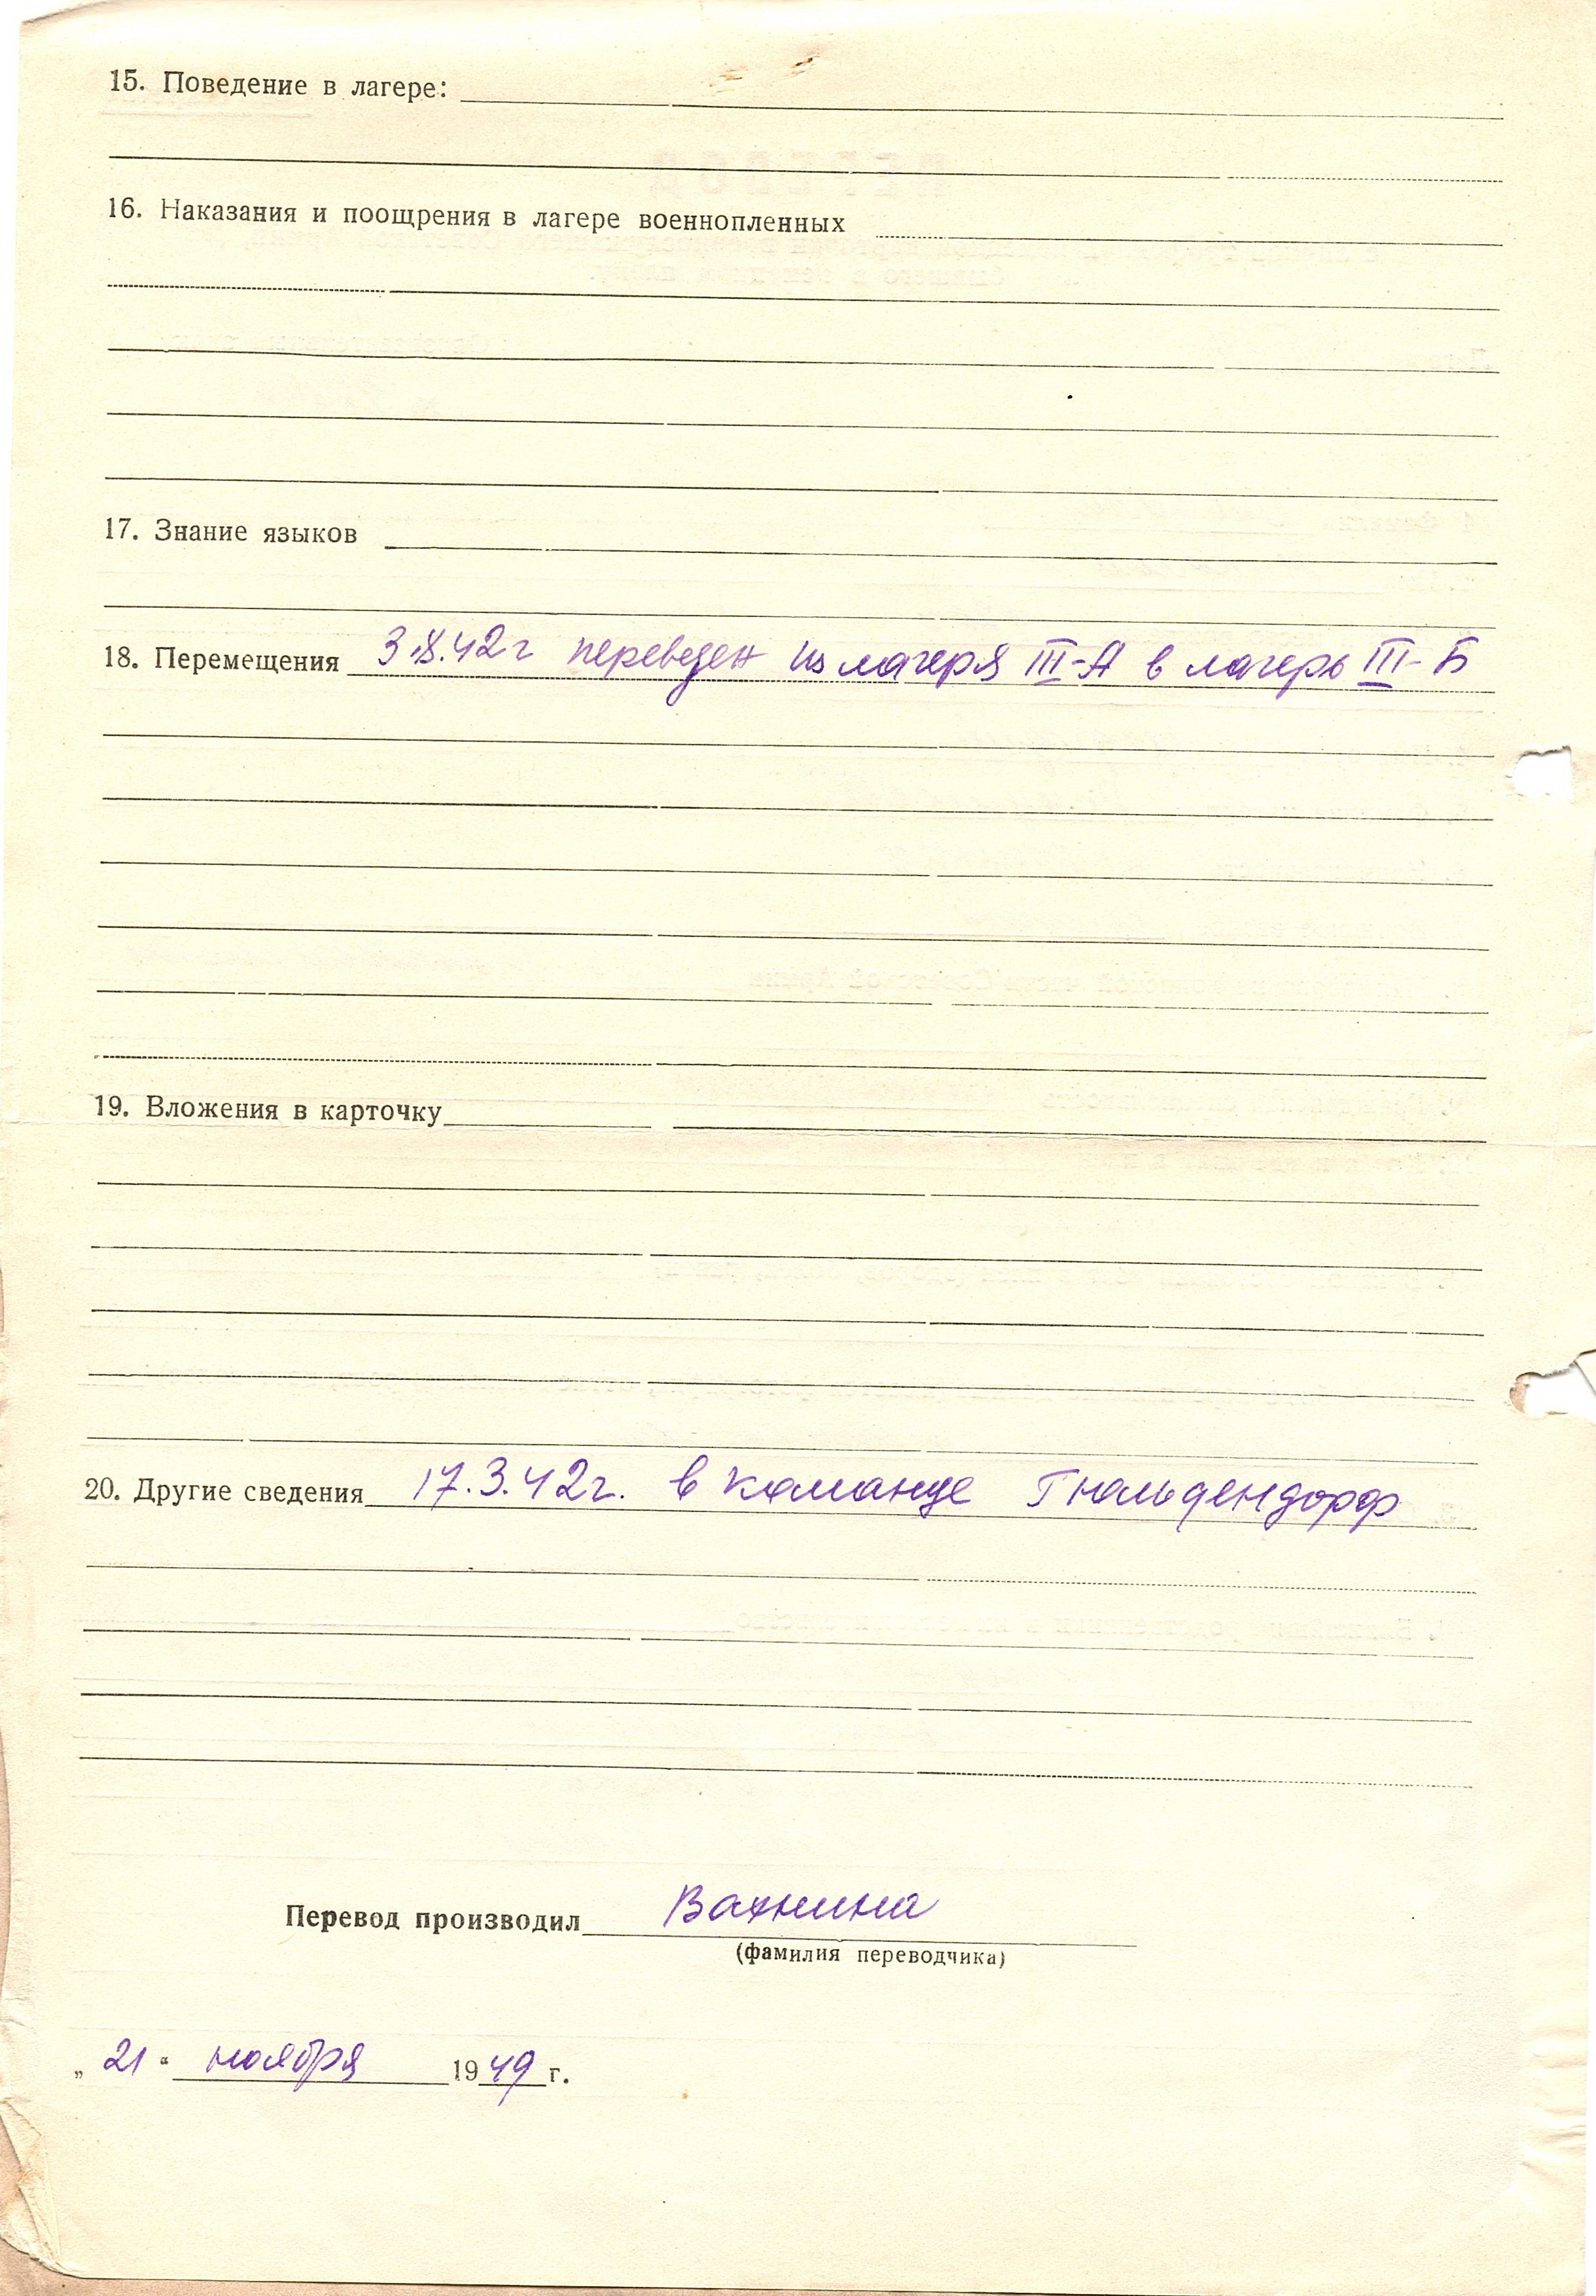 15. Поведение в лагере:
16. Наказания и поощрения в лагере военнопленных
17. Знание языков
18. Перемещения 3.8.42г переведен из лагеря III-А в лагерь III-Б
19. Вложения в карточку
20. Другие сведения 17.3.42г. в команде Гюльдендорф
Перевод производил Вахнина
(фамилия переводчика)
„ 21 “ ноября 1949 г.